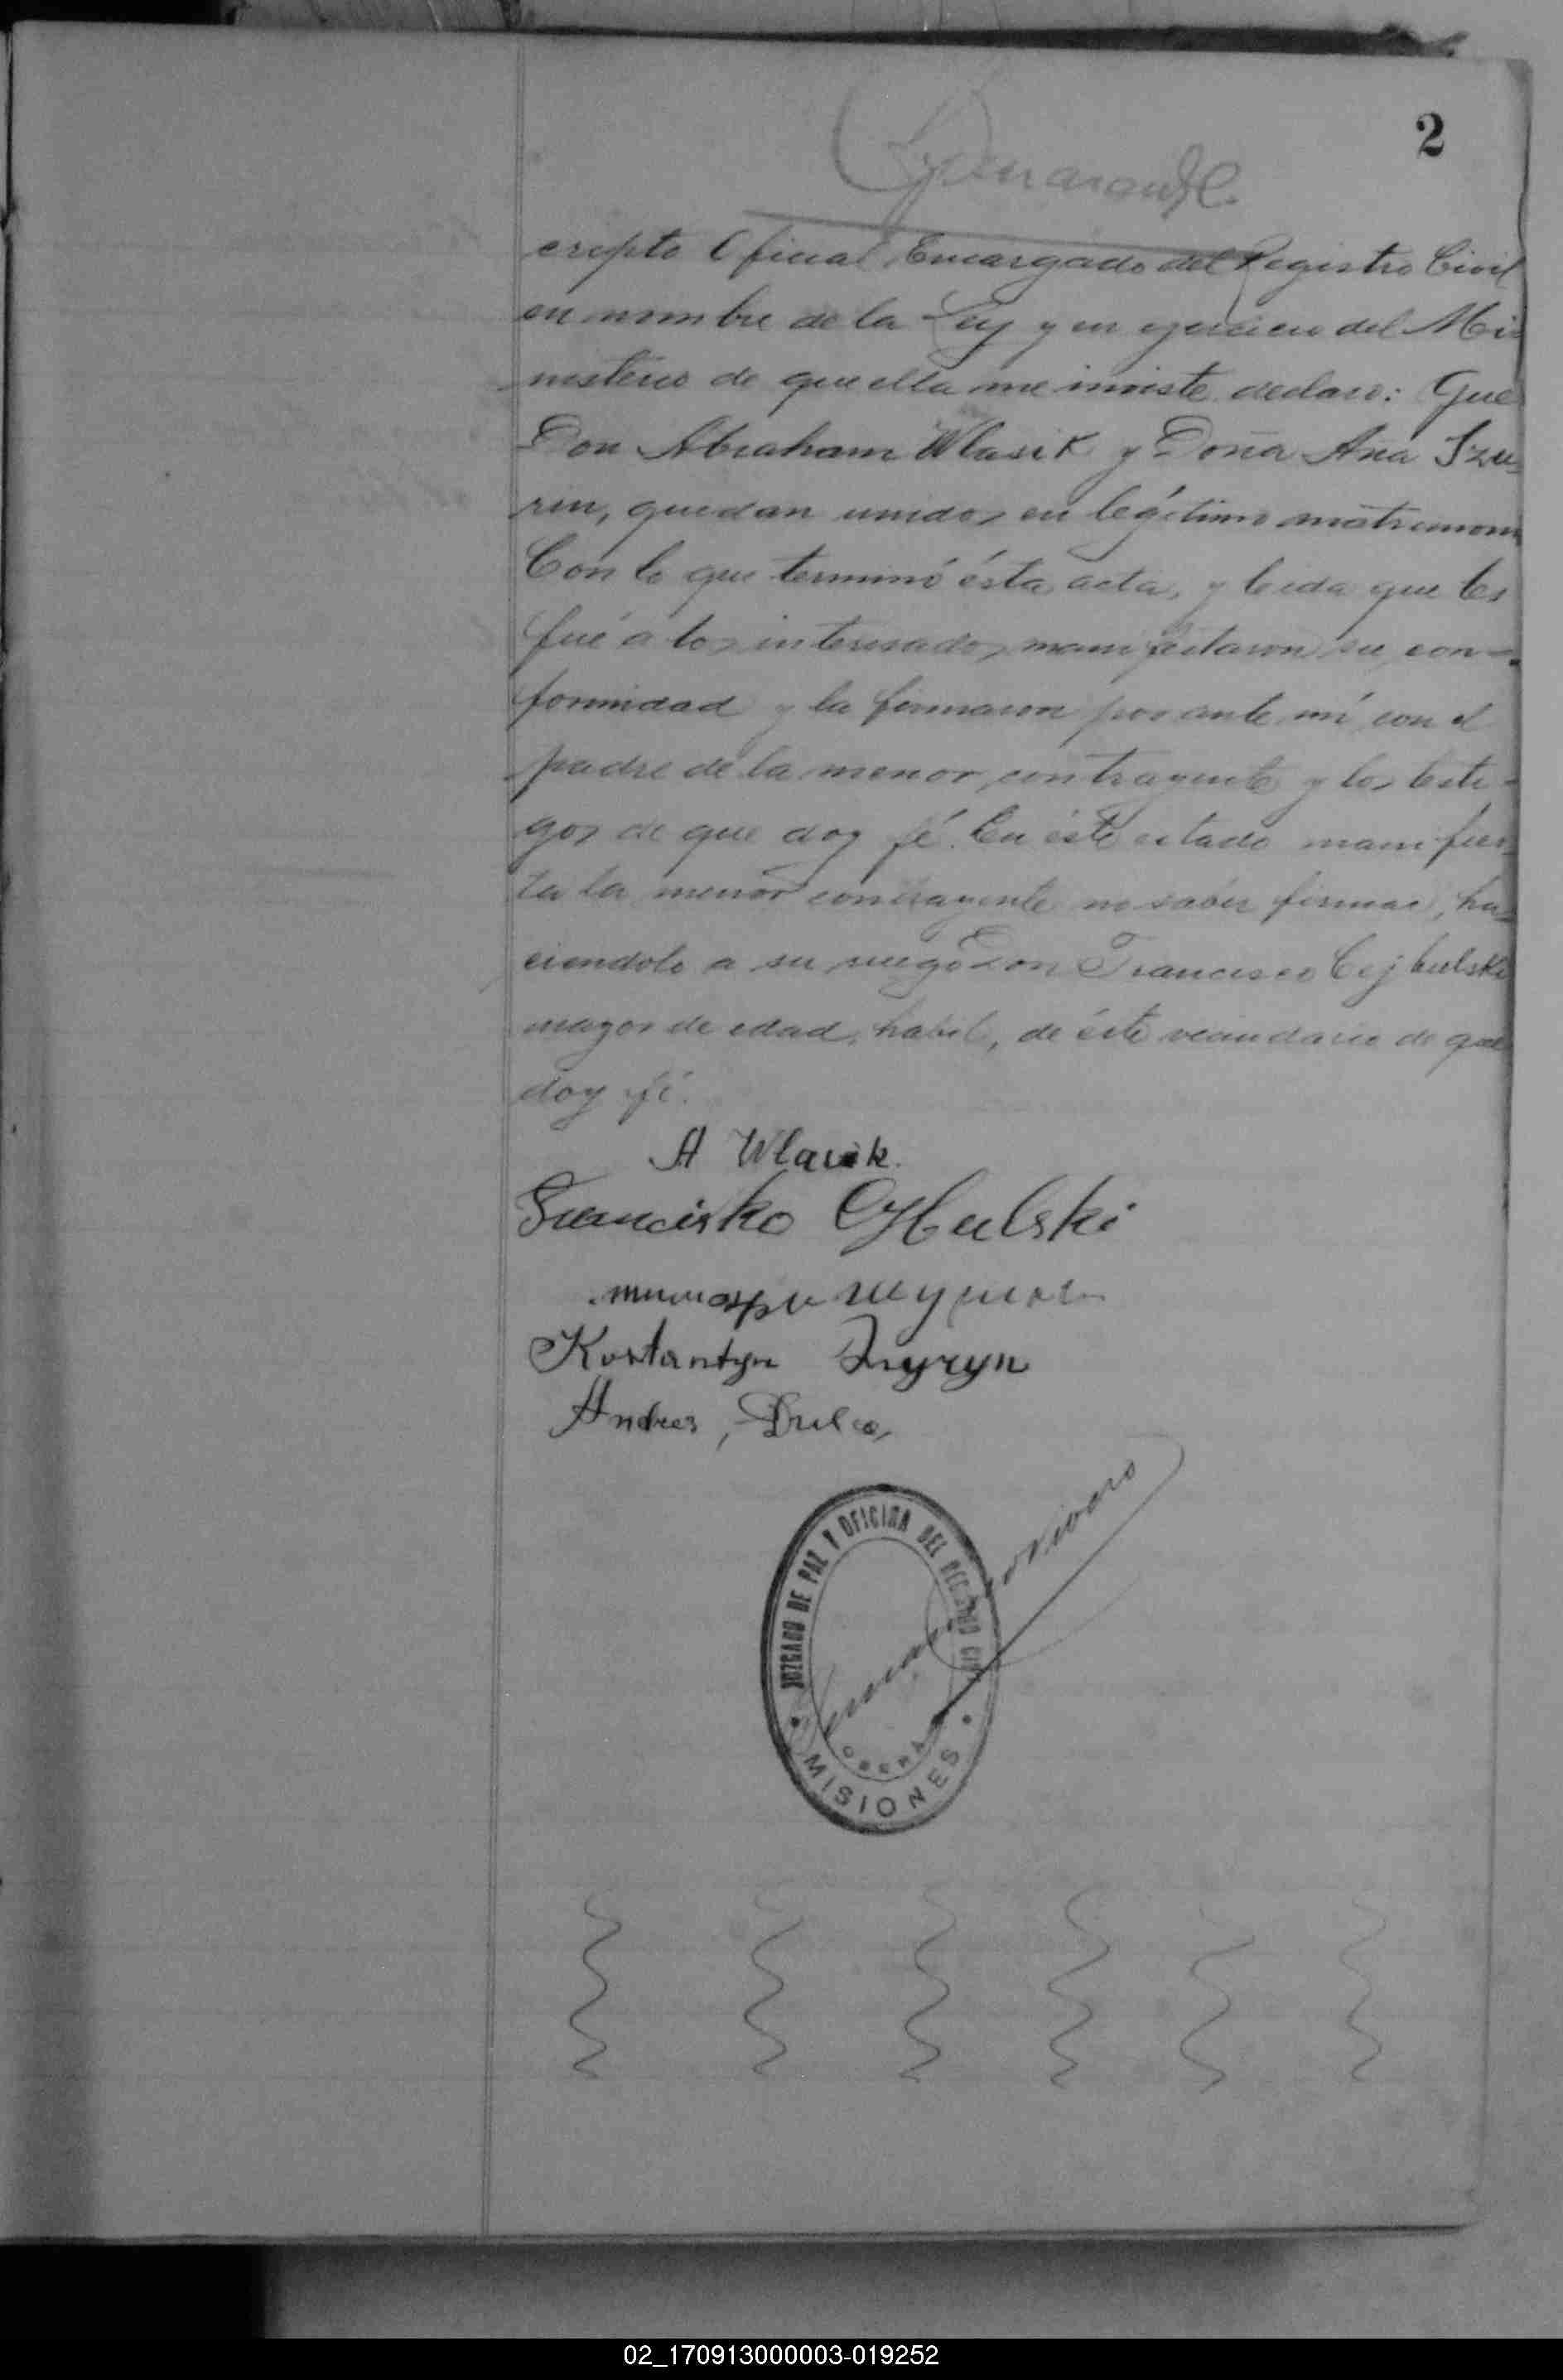 2
cripto Oficial Encargado del Registro Civil
en nombre de la Ley y en ejercicio del Mi-
nisterio de que ella me inviste declaro: Que
Don Abraham Wlasik y Doña Ana Szu-
rin, quedan unidos en legítimo matrimonio
Con lo que terminó ésta acta, y leida que les
fué a los interesados, manifestaron su con-
formidad y la firmaron por ante mí con el
padre de la menor contrayente y los testi-
gos de que doy fé. En éste estado manifies-
ta la menor contrayente no saber firmar, ha-
ciendolo a su ruego Don Francisco Cijbulski
mayor de edad, habil, de éste vecindario de que
doy fé.
A Wlasik.
Francisko Cybulski
Kostantyn
Andres,
JUZGADO DE PAZ Y OFICINA DEL REGISTRO CIVIL
OBERA
MISIONES
02_170913000003-019252